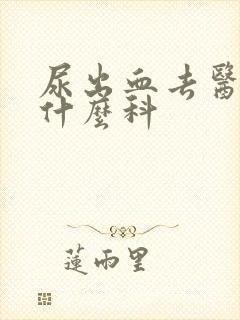 尿出血去醫
什麼科
蓮雨里